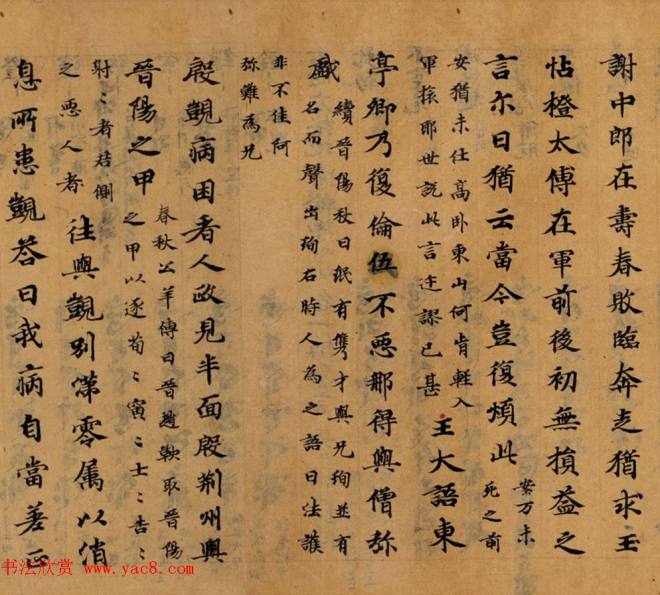 謝中郎在壽春敗臨奔走猶求玉
怗橙太傅在軍前後初無損益之
言尒日猶云當今豈復煩此
案万未
死之前
安猶未仕高卧東山何肯輕入
軍旅耶世說此言迂謬已甚
王大語東
亭卿乃復倫伍不悪那得與僧弥
戲
續晉陽秋曰珉有雋才與兄珣並有
名而聲出珣右時人為之語曰法護
非不佳阿
弥難為兄
殷覬病困看人政見半面殷荊州興
晉陽之甲
春秋公羊傳曰晉趙鞅取晉陽
之甲以逐荀〻寅〻士〻吉〻
射〻者君側
之悪人者
往與覬別涕零属以俏
息所患覬荅曰我病自當差正
书法欣赏 www.yac8.com